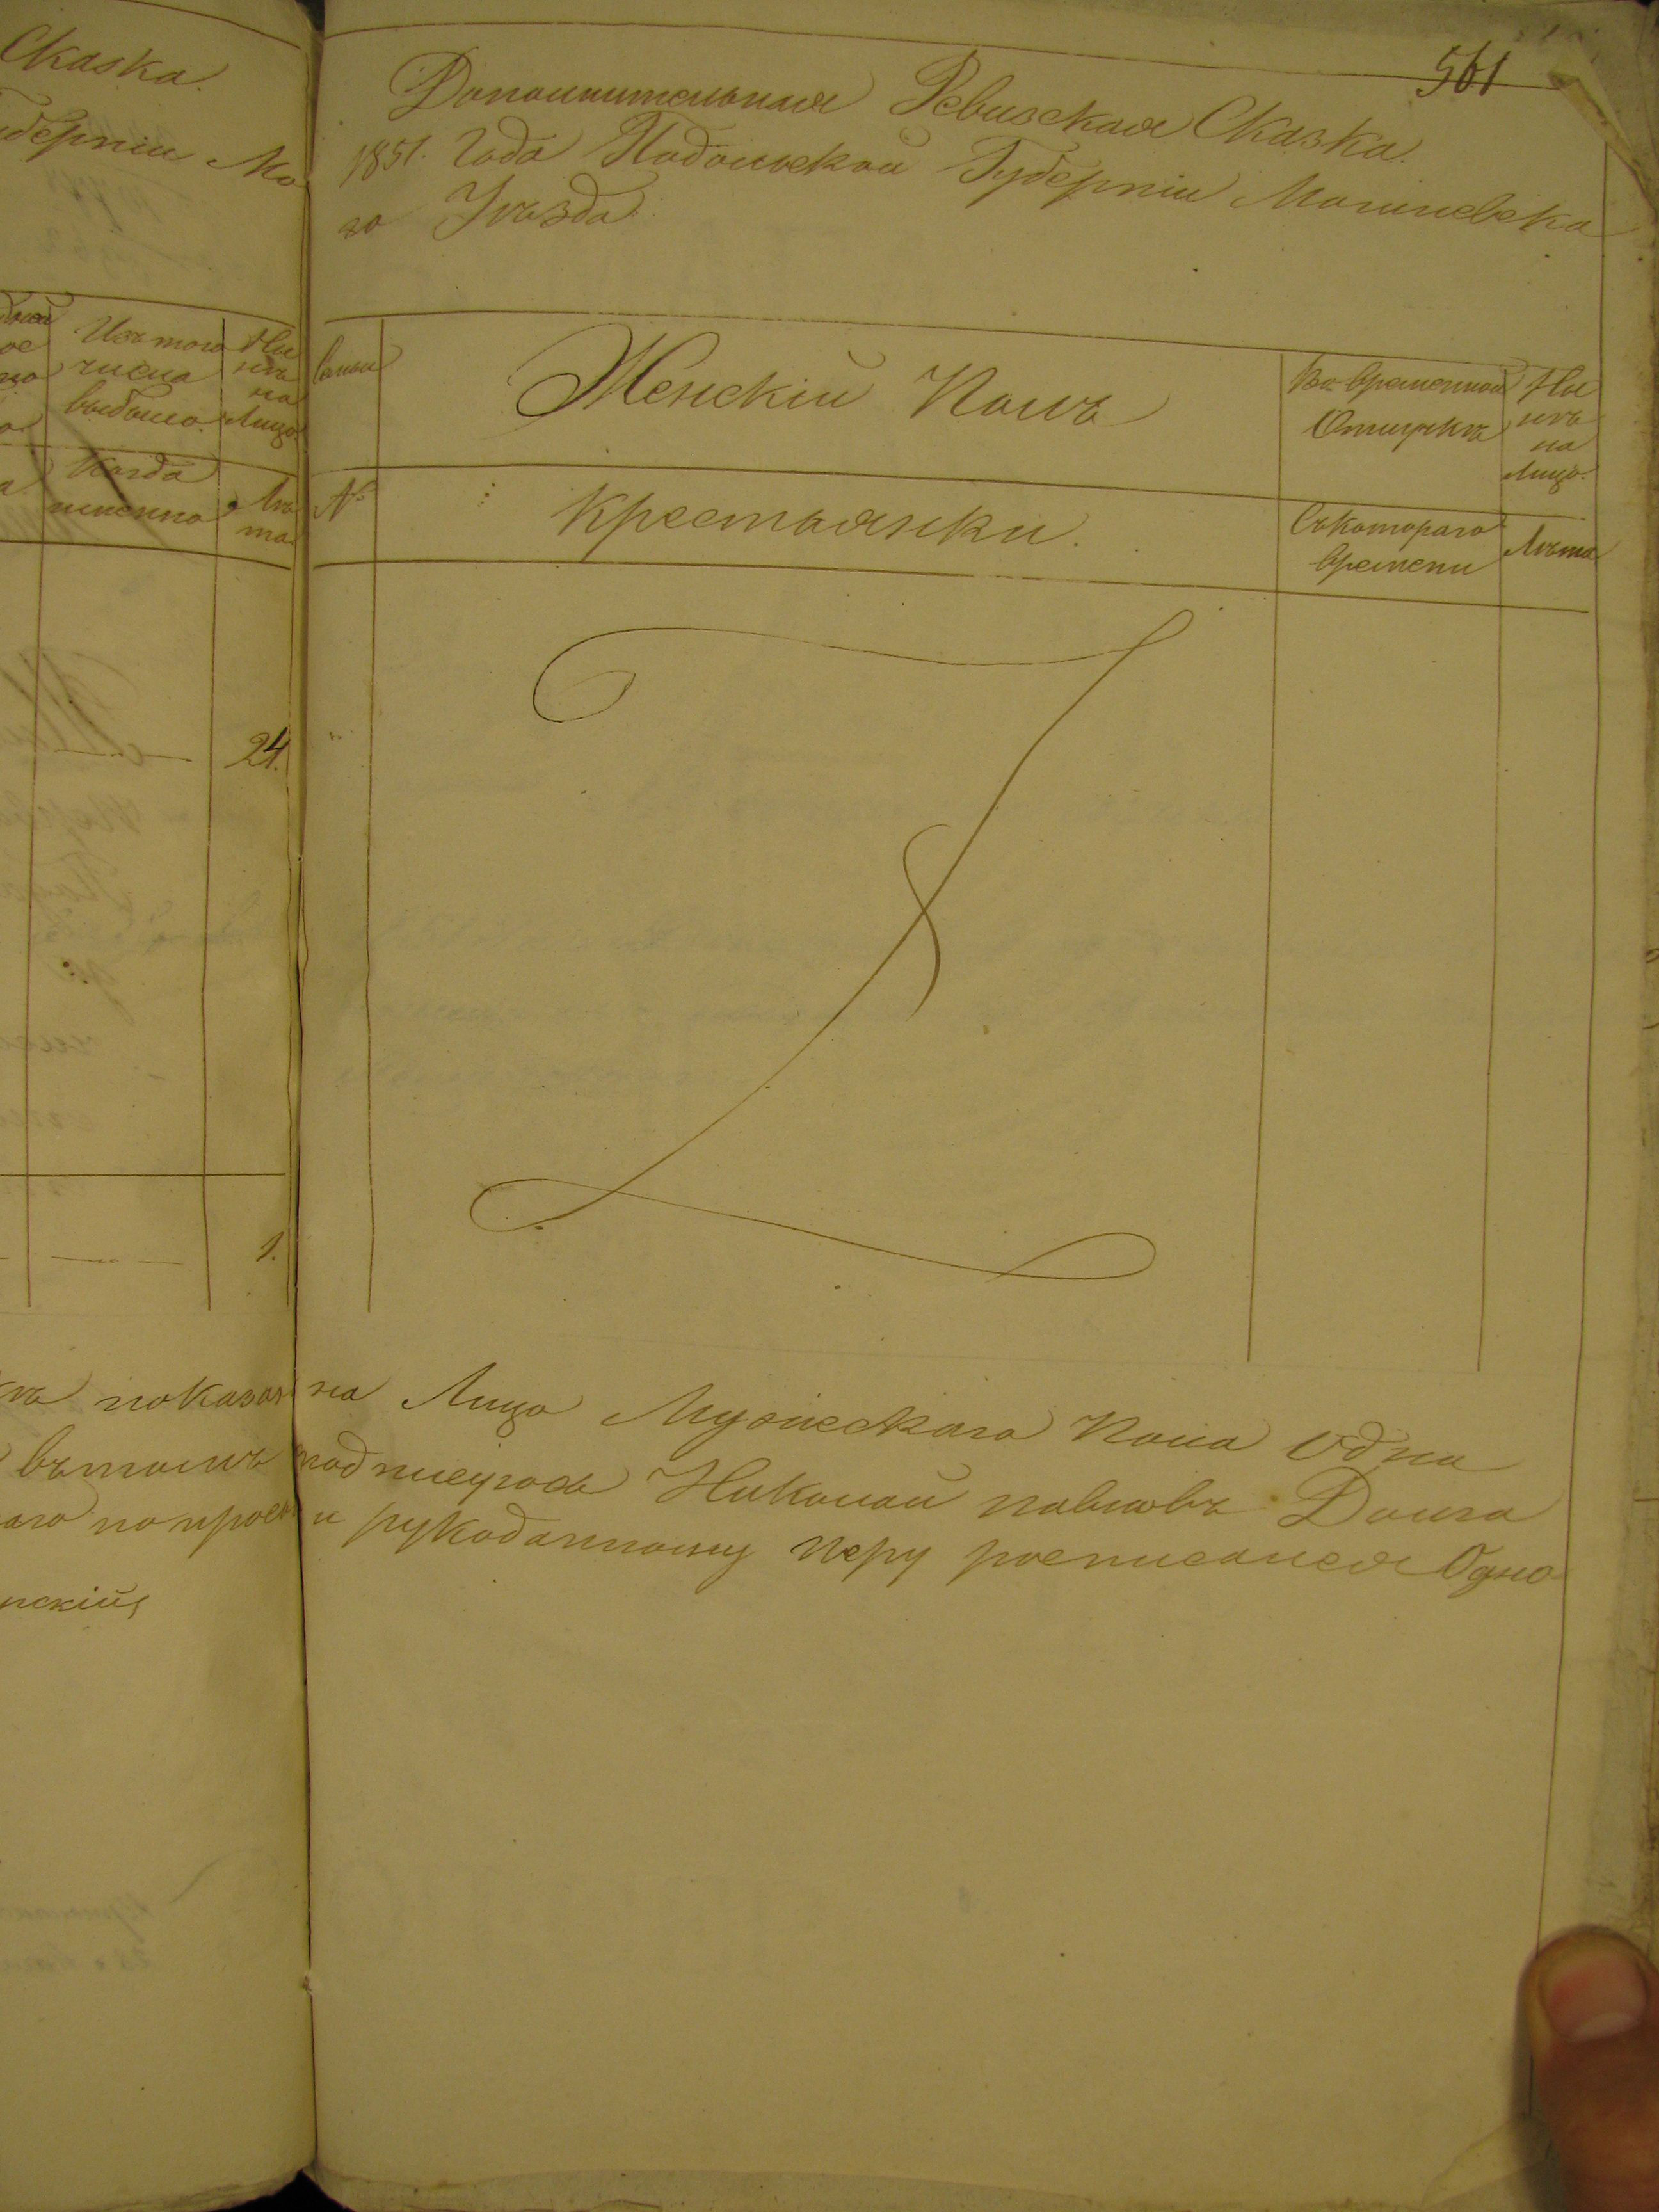 Сказка.
уберніи Мо
Изъ того
числа
выбыло.
Ны
нѣ
на
Лицо.
Когда
именно
Лѣ
та.
24.
1.
показан
въ томъ
аго по прось
нскій
561
Дополнительная Ревизская Сказка.
1851. Года Подольской Губерніи Могилевска
го Уѣзда
Семьи
Женскій Полъ
Во временной
Отлучкѣ
Ны
нѣ
на
Лицо.
№
Крестьянки.
Съ котораго
времени
Лѣта
на Лицо Мужескаго Пола Одна
подписуюся Николай Павловъ Долга
и рукоданному перу росписался Одно